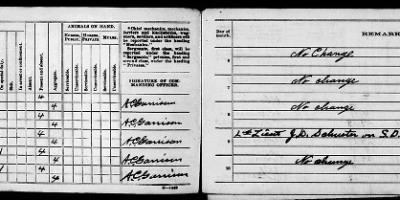 ANIMALS ON HAND.
"Chief mechanics, mechanics,
Horses,
Public.
Horses,
Private.
Mules.
be reported under the heading
"Mechanics."
Sergeants, first class, will be
reported under the heading
"Sergeants;" privates, first and
second class, under heading
"Privates."
On special duty.
Sick.
In arrest or confinement.
Absent.
Present and absent.
Aggregate.
Serviceable.
Unserviceable.
Serviceable.
Unserviceable.
Serviceable.
Unserviceable.
SIGNATURE OF COM-
MANDING OFFICER.
4
4 A.C. Garrison
4 A.C. Garrison
4 A.C. Garrison
4 A.C. Garrison
4 A.C. Garrison
Day of
month.
REMARK
6 No Change
7 No change
8 No change
9 1st Lieut J.D. on S.D.
10 No change